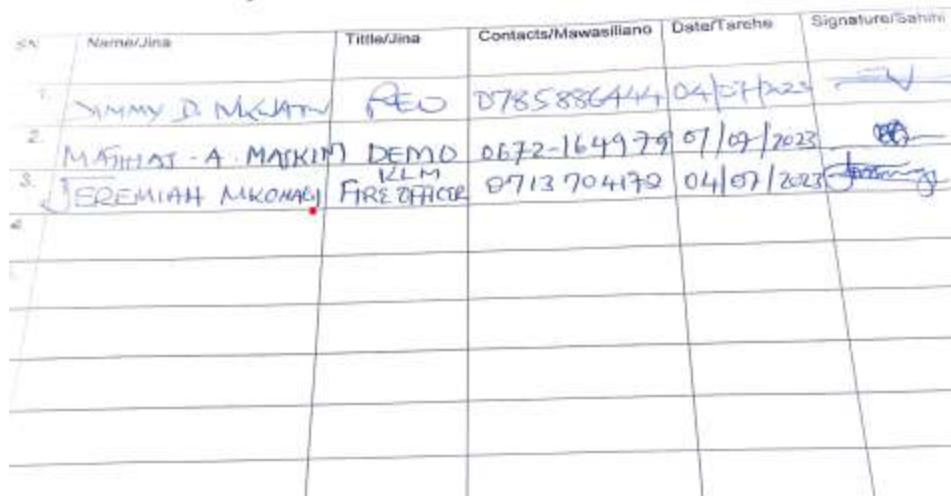 SN Name/Jina Tittle/Jina Contacts/Mawasiliano Date/Tarehe Signature/Sahihi
1. JIMMY D. REO 0785886444 04/07/2023
2. A. MASKINI DEMO 0672-164979 07/07/2023
KLM
3. JEREMIAH MKONAGI FIRE OFFICER 0713 704172 04/07/2023
4.